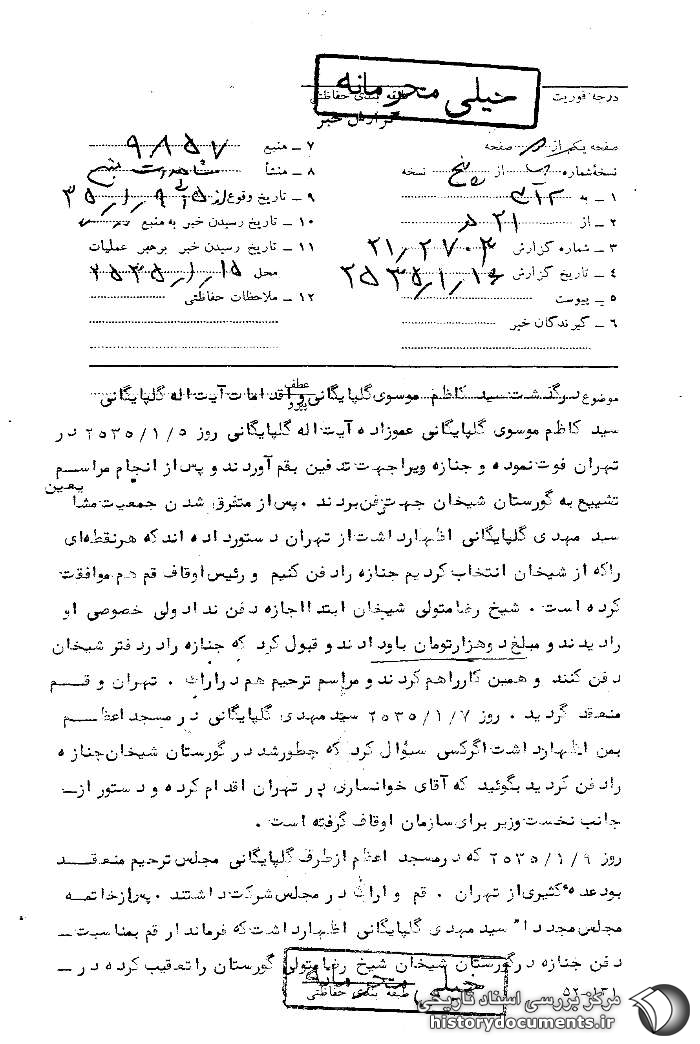 خیلی محرمانه
درجه فوریت
طبقه بندی حفاظتی
گزارش خبر
صفحه یکم از صفحه
نسخه شماره از پنج نسخه
۱ ـ به
۲ ـ از ۲۱ ه
۳ ـ شماره گزارش ۲۱٫۲۷۰۳
۴ ـ تاریخ گزارش ۲۵۳۵٫۱٫۱۶
۵ ـ پیوست
۶ ـ گیرندگان خبر
۷ ـ منبع ۹۸۵۷
۸ ـ منشأ
۹ ـ تاریخ وقوع
۱۰ ـ تاریخ رسیدن خبر به منبع
۱۱ ـ تاریخ رسیدن خبر برهبر عملیات
محل ۲۵۳۵٫۱٫۱۵
۱۲ ـ ملاحظات حفاظتی
عطف
پیرو
موضوع درگذشت سید کاظم موسوی گلپایگانی و اقدامات آیت اله گلپایگانی
سید کاظم موسوی گلپایگانی عموزاده آیت اله گلپایگانی روز ۲۵۳۵/۱/۵ در
تهران فوت نموده و جنازه ویرا جهت تدفین بقم آوردند و پس از انجام مراسم
تشییع به گورستان شیخان جهت دفن بردند ۰ پس از متفرق شدن جمعیت مشایعین
سید مهدی گلپایگانی اظهارداشت از تهران دستور داده اند که هر نقطه‌ای
را که از شیخان انتخاب کردیم جنازه را دفن کنیم و رئیس اوقاف قم هم موافقت
کرده است ۰ شیخ رضا متولی شیخان ابتدا اجازه دفن نداد ولی خصوصی او
را دیدند و مبلغ دو هزار تومان باو دادند و قبول کرد که جنازه را در دفتر شیخان
دفن کنند و همین کار را هم کردند و مراسم ترحیم هم در اراک ۰ تهران و قم
منعقد گردید ۰ روز ۲۵۳۵/۱/۷ سید مهدی گلپایگانی در مسجد اعظم
بمن اظهارداشت اگر کسی سؤال کرد که چطور شد در گورستان شیخان جنازه
را دفن کردید بگوئید که آقای خوانساری در تهران اقدام کرده و دستور از ـ
جانب نخست وزیر برای سازمان اوقاف گرفته است ۰
روز ۲۵۳۵/۱/۹ که در مسجد اعظم از طرف گلپایگانی مجلس ترحیم منعقد
بود عده کثیری از تهران ۰ قم و اراک در مجلس شرکت داشتند ۰ پس از خاتمه
مجلس مجدداً سید مهدی گلپایگانی اظهارداشت که فرماندار قم بمناسبت ـ
دفن جنازه در گورستان شیخان شیخ رضا متولی گورستان را تعقیب کرده در ـ
خیلی محرمانه
طبقه بندی حفاظتی
مرکز بررسی اسناد تاریخی
historydocuments.ir